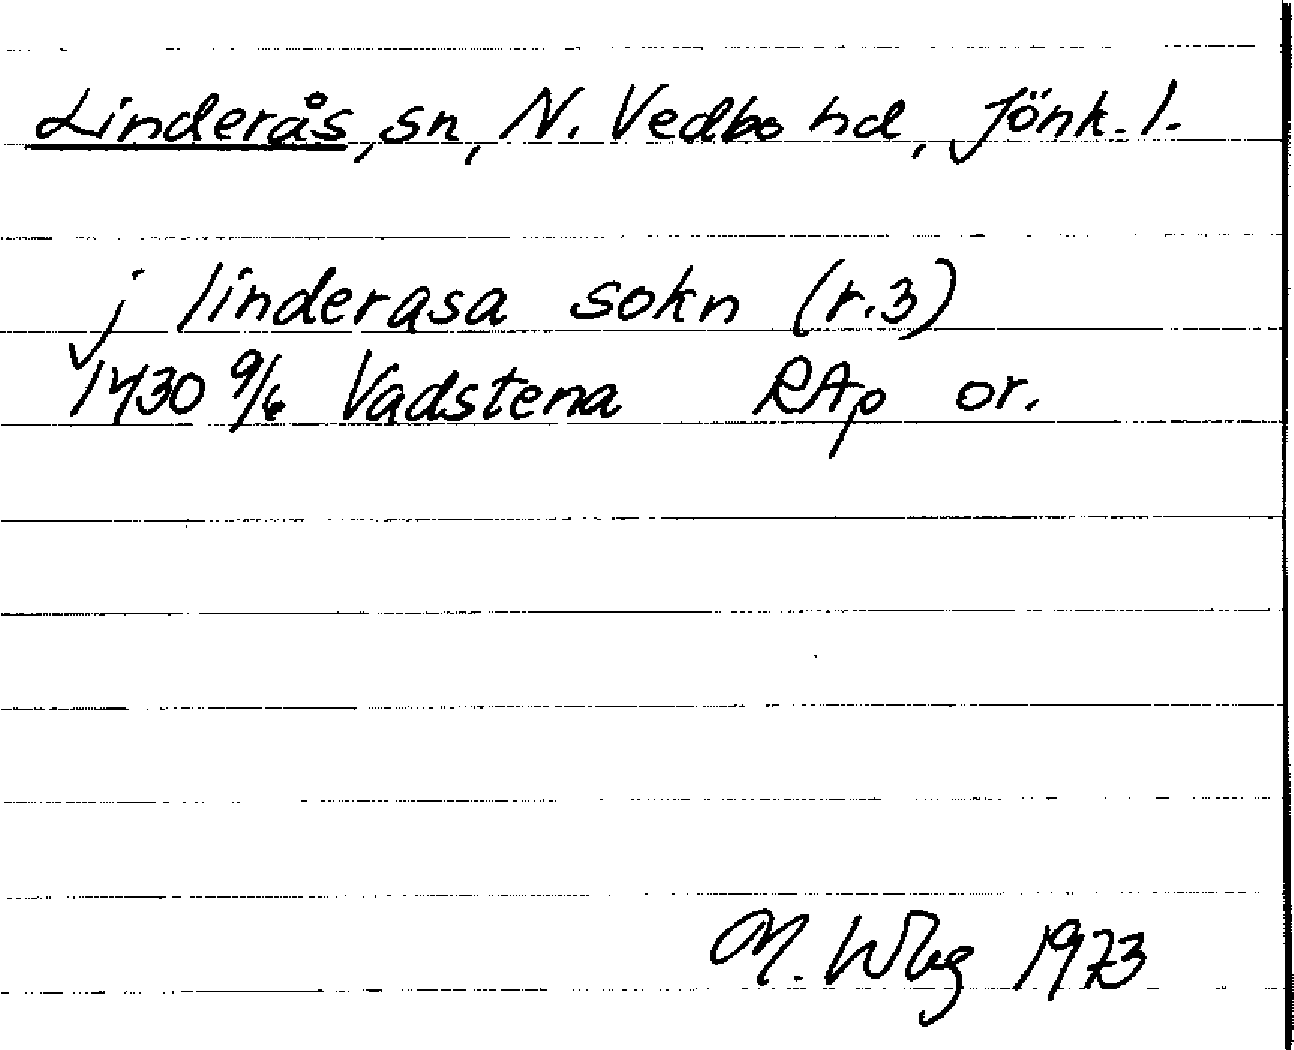 Linderås, sn, N. Vedbo hd, Jönk. l.
j linderasa sokn (r.3)
1430 9/6 Vadstena RAp or.
M. Wbg 1973